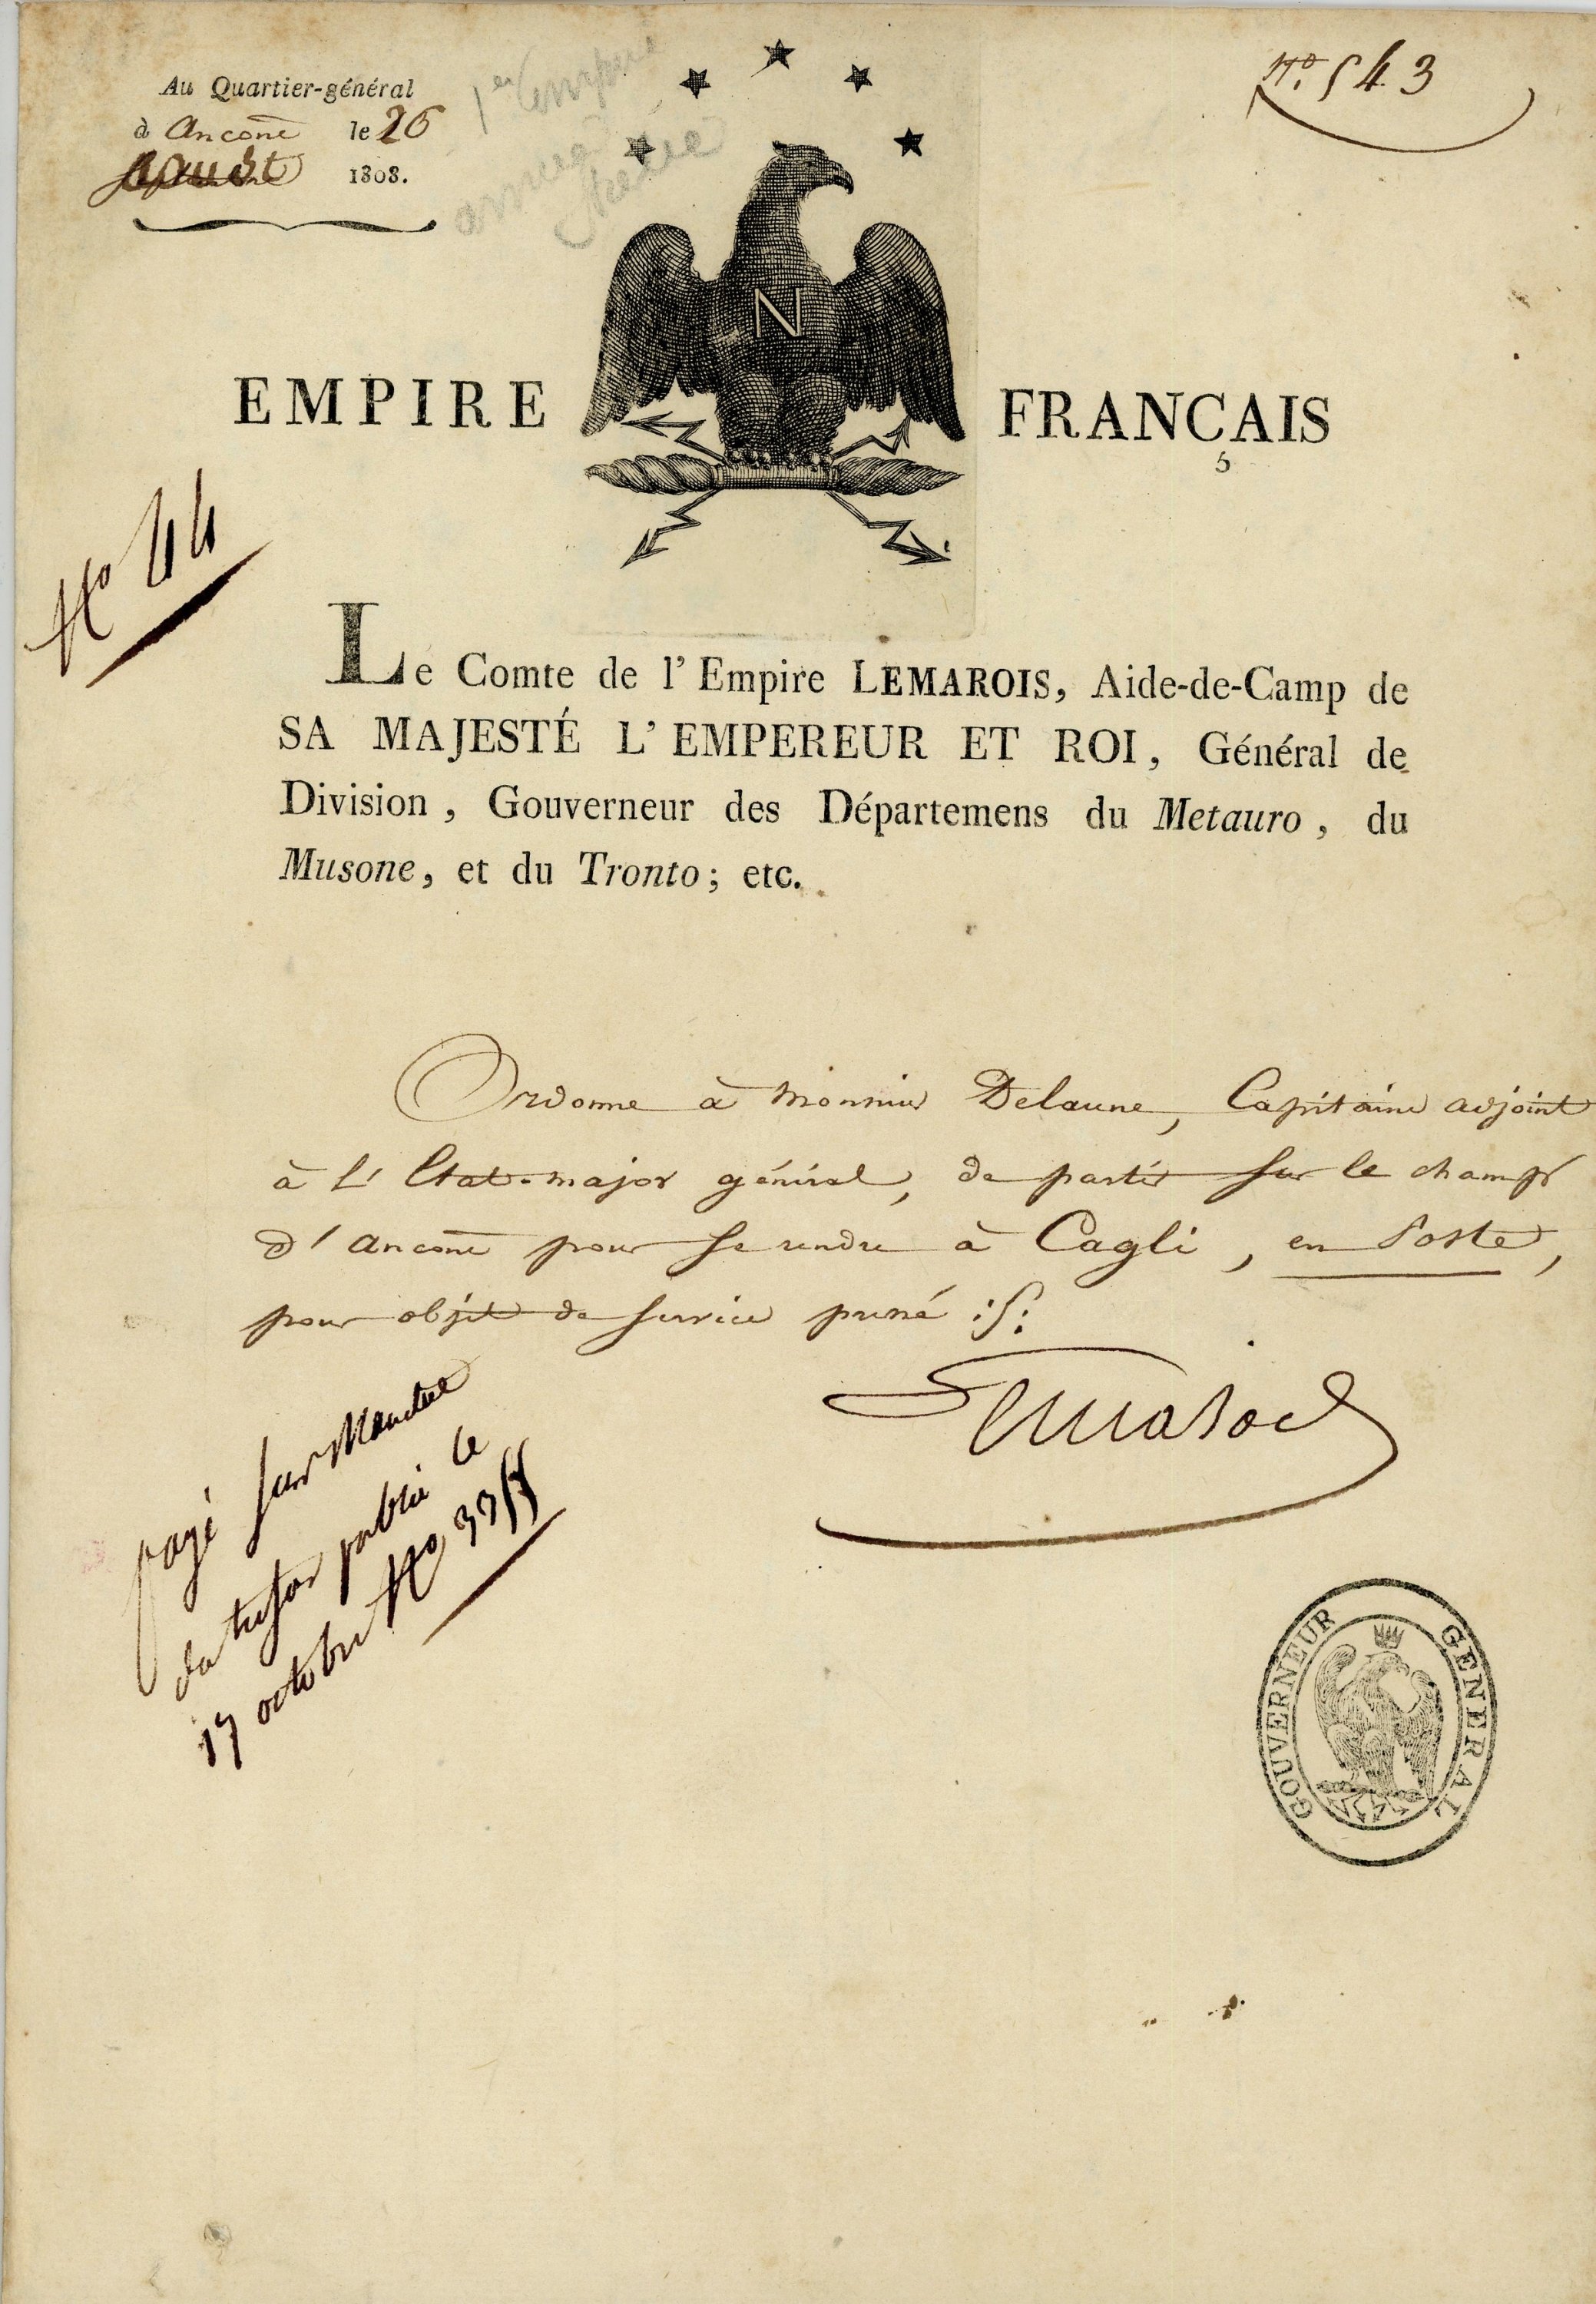 Au Quartier-général
à Ancone le 26
aoust 1808.
1er Empire
armée
N.o 543
N
EMPIRE FRANÇAIS
No 44
Le Comte de l' Empire LEMAROIS, Aide-de-Camp de
SA MAJESTÉ L' EMPEREUR ET ROI, Général de
Division, Gouverneur des Départemens du Metauro, du
Musone, et du Tronto; etc.
Ordonne à Monsieur Delaune, Capitaine adjoint
à L' Etat-major général, de partir sur le champ
d' ancone pour se rendre à Cagli, en Poste,
pour objet de service pressé :/:
Lemarois
payé sur Mandat
du tresor public le
17 octobre No
GOUVERNEUR GENERAL